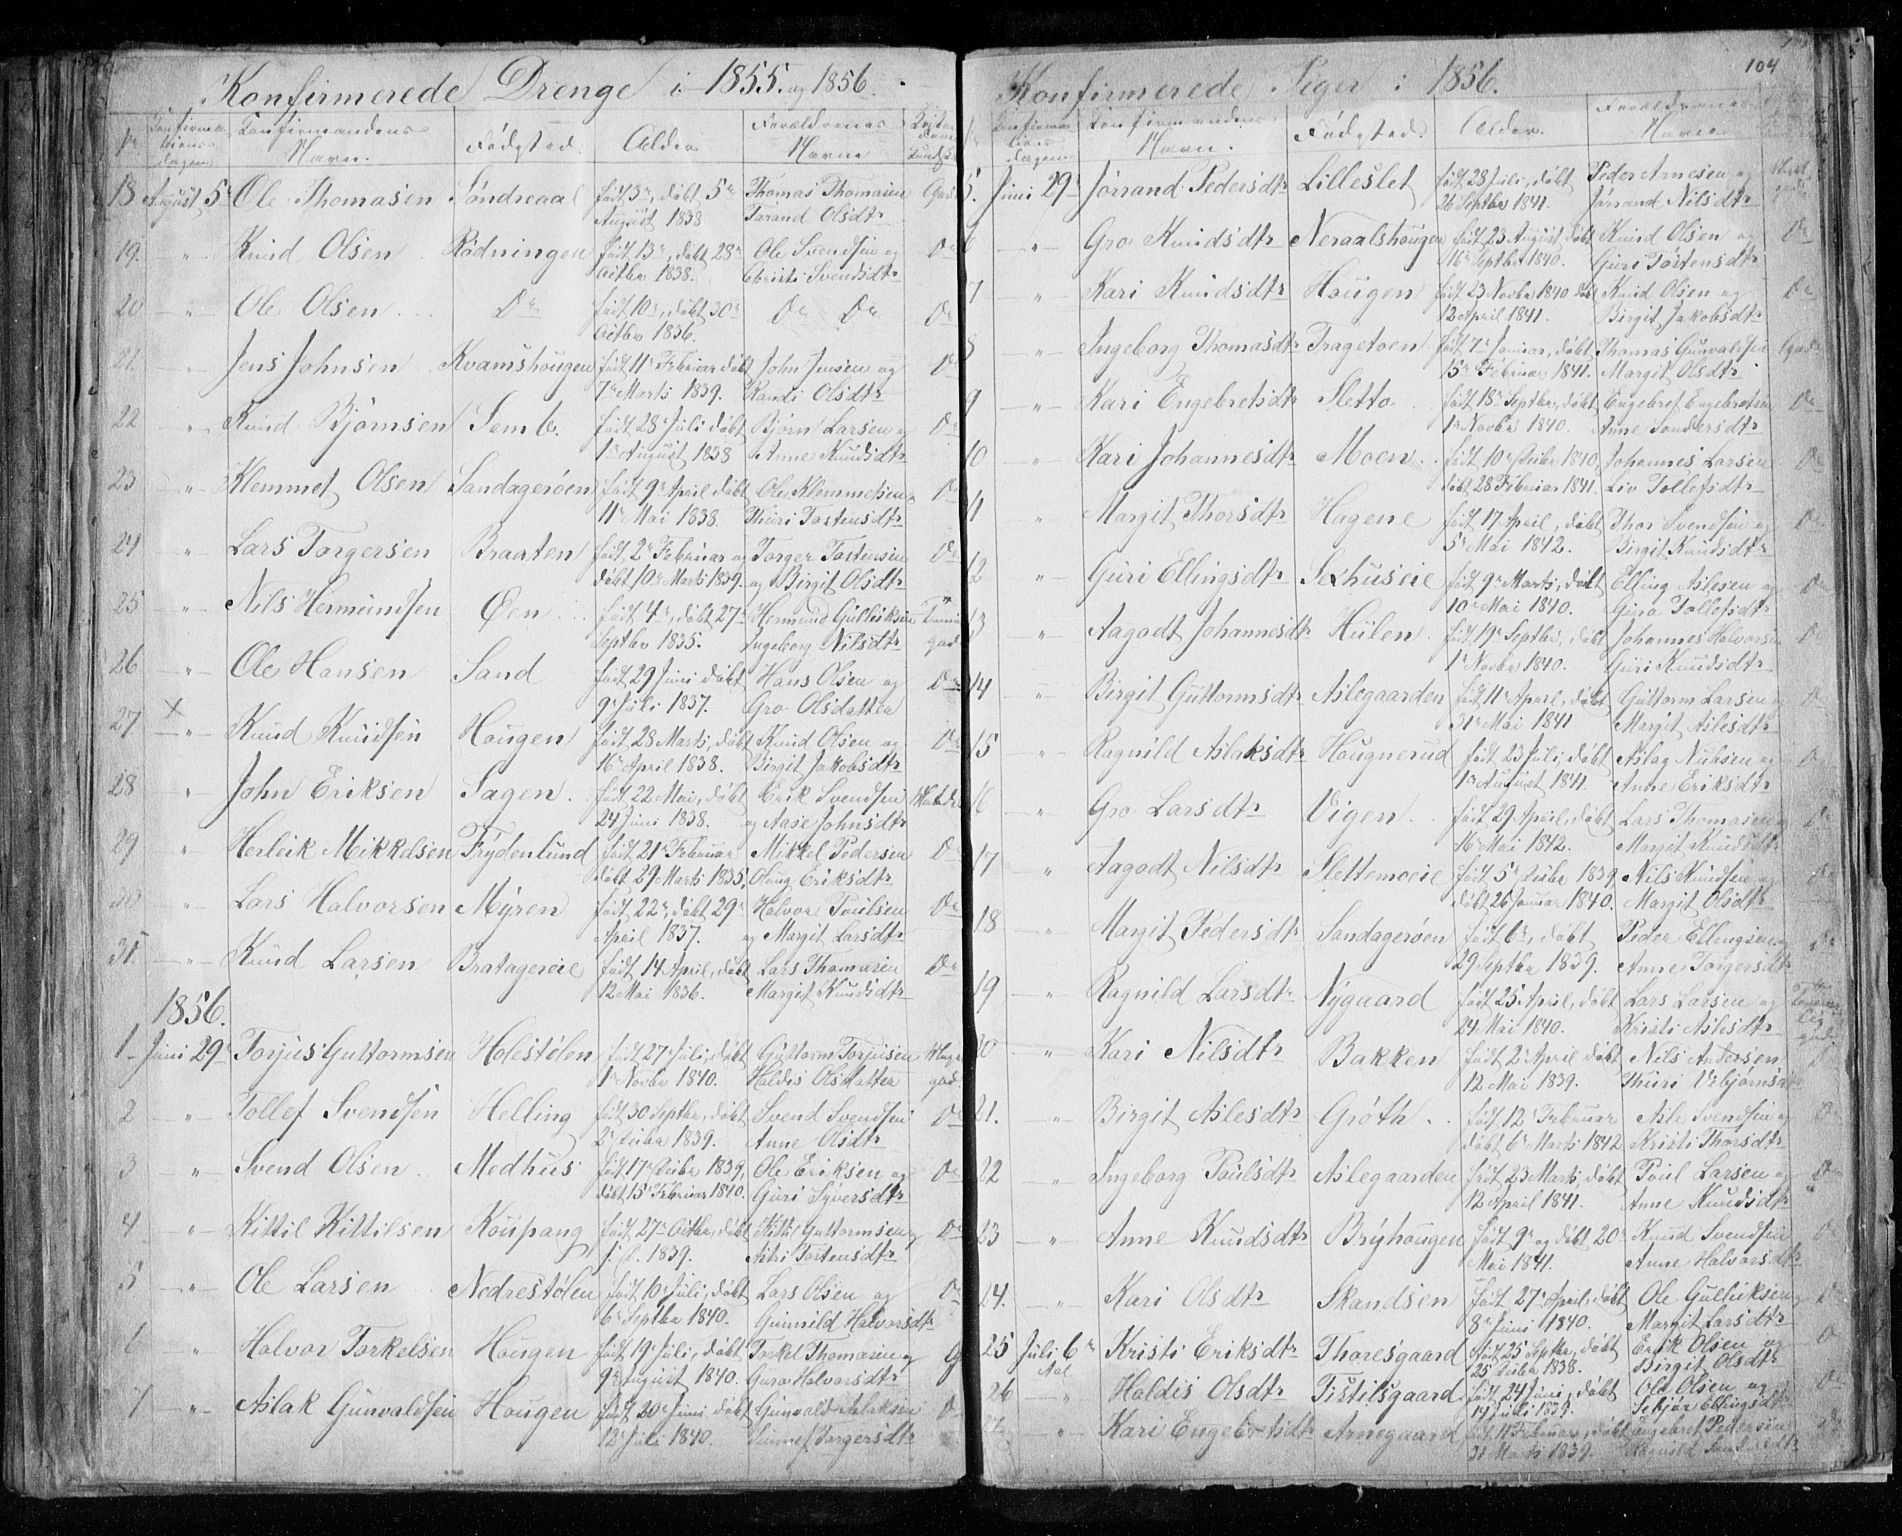 Konfirmerede Drenge i 1855. og 1856.
Nr Konfirmationsdagen Konfirmandens Navn. Fødested Alder Forældrenes Navne
18 August 5te Ole Thomasen Søndreaal født 3de, døbt 5te Thomas Thomasen God
August 1838 Torand Olsdtr
19. " Knud Olsen Rødningen født 13de, døbt 28de Ole Svendsen og Do
Octbr 1838. Christi Svendsdtr
20 " Ole Olsen Do født 10de, døbt 30te Do Do Do
Octbr 1836.
21. " Jens Johnsen Kvamshougen født 11te Februar døbt John Jensen og Do
7de Marts 1839. Randi Olsdtr
22 " Knud Bjørnsen Semb. født 28 Juli døbt Bjørn Larsen og Do
1ste August 1838 Anne Knudsdtr
23 " Klemmet Olsen Sandagerøen født 9de April døbt Ole Klemmetsen Do
11te Mai 1838. Thuri Tostensdtr
24 " Lars Torgersen Braaten født 2den Februar og Torger Tostensen Do
døbt 10de Marts 1839. og Birgit Olsdtr
25 " Nils Hermundsen Øen født 4de, døbt 27de Hermund Gulleiksen
Septbr 1835. Ingeborg Nilsdtr god
26 " Ole Hansen Sand født 29 Juni døbt Hans Olsen og Do
9de Juli 1837. Gro Olsdatter
27 × " Knud Knudsen Hougen født 28 Marts, døbt Knud Olsen og Do
16de April 1838. Birgit Jakobsdtr
28 " John Eriksen Sagen født 22 Mai, døbt Erik Svendsen
24 Juni 1838. og Aase Johnsdtr
29 " Herleik Mikkelsen Frydenlund født 21de Februar Mikkel Pedersen Do
døbt 29 Marts 1835, Olaug Eriksdtr
30 " Lars Halvorsen Myren født 22de, døbt 29de Halvor Poulsen Do
April 1837. og Margit Larsdtr
31. " Knud Larsen Bratagereie født 14 April, døbt Lars Thomasen Do
12 Mai 1836. Margit Knudsdtr
1856.
1. Juni 29de Torjus Guttormsen Holestølen født 27de Juli, døbt Guttorm Torjusen
1ste Novbr 1840. Haldis Olsdatter god
2 " Tollef Svendsen Helling født 30 Septbr, døbt Svend Svendsen Do
2den Decbr 1839. Anne Olsdtr
3 " Svend Olsen Medhus født 17de Decbr 1839, Ole Eriksen og Do
døbt 15de Februar 1840. Guri Syversdtr
4 " Kittil Kittilsen Koupang født 27de Octbr, døbt Kittil Guttormsen og Do
1839. Tostensdtr
5 " Ole Larsen Nedrestølen født 10de Juli, døbt Lars Olsen og Do
6te Septbr 1840. Gunnild Halvorsdtr
6 " Halvor Torkelsen Hougen født 19de Juli, døbt Torkel Thomasen og G
9de August 1840. Guro Halvorsdtr
7 " Aslak Gunvaldsen Hougen født 20de Juni døbt Gunvald Aslaksen D
12te Juli 1840. Torgersdtr
104
Konfirmerede Piger i 1856.
Konfirmationsdagen Konfirmandens Navn. Fødested. Alder. Forældrenes Navne
5. Juni 29de Jørrand Pedersdtr Lilleslet født 28 Juli, døbt Peder Arnesen og
26 Septbr 1841. Jørrand Nilsdtr
6 " Gro Knudsdtr Neraalshougen født 23 August, døbt Knud Olsen og Do
16de Septbr 1840. Guri Tostensdtr
7 " Kari Knudsdtr Hougen født 23 Novbr 1840 døbt Knud Olsen og Do
12 April 1841. Birgit Jakobsdtr
8 " Ingeborg Thomasdtr Tragetoen født 7de Januar, døbt Thomas Gunvaldsen God
15de Februar 1841. Margit Olsdtr
9 " Kari Engebretsdtr Sletto født 18de Septbr, døbt Engebret Engebretsen Do
1ste Novbr 1840. Anne Sondersdtr
10 " Kari Johannesdtr Moen født 10de Decbr 1840, Johannes Larsen Do
døbt 28 Februar 1841. Liv Tollefsdtr
11 " Margit Thorsdtr Hagene født 17 April, døbt Thor Svendsen og Do
5te Mai 1842. Birgit Knudsdtr
12 " Guri Ellingsdtr Sexhuseie født 9de Marts, døbt Elling Aslesen og Do
10de Mai 1840. Guro Tollefsdtr
13 " Aagodt Johannesdtr Hulen født 19de Septbr, døbt Johannes Halvorsen D
1ste Novbr 1840. Guri Knudsdtr
14 " Birgit Guttormsdtr Aslegaarden født 11te April, døbt Guttorm Larsen D
31te Mai 1841 Margit Aslesdtr
15 " Ragnild Aslaksdtr Hougnerud født 23 Juli, døbt Aslag Nubsen og D
1ste August 1841. Anne Eriksdtr
16 " Gro Larsdtr Vigen født 29 April, døbt Lars Thomasen D
16de Mai 1842. Margit Knudsdtr
17 " Aagodt Nilsdtr Slettemoeie født 5te Decbr 1839 Nils Knudsen D
døbt 26 Januar 1840. Margit Olsdtr
18 " Margit Pedersdtr Sandagerøen født 6te, døbt Peder Ellingsen Do
29 Septbr 1839. Anne Torgersdtr
19 " Ragnild Larsdtr Nygaard født 25 April, døbt Lars Larsen og
24 Mai 1840. Kristi Aslesdtr
20 " Kari Nilsdtr Bakken født 2den April døbt Nils Andersen D
12 Mai 1839. Thuri Vebjørnsdtr
21. " Birgit Aslesdtr Grøth født 12te Februar Asle Svendsen og D
døbt 6te Marts 1842 Kristi Thorsdtr
22 " Ingeborg Poulsdtr Aslegaarden født 23 Marts, døbt Poul Larsen D
12 April 1841. Anne Knudsdtr
23 " Anne Knudsdtr Bryhougen født 9de og døbt 20de Knud Svendsen D
Mai 1841. Anne Halvorsdtr
24. " Kari Olsdtr Skandsen født 27de April, døbt Ole Gulleiksen D
8de Juni 1840. Margit Larsdtr
25 Juli 6te Kristi Eriksdtr Thoresgaard født 25 Septbr, døbt Erik Olsen og D
Aal 25 Decbr 1838. Birgit Olsdtr
26 " Haldis Olsdtr Tistilsgaard født 24 Juni, døbt Ole Olsen og D
14 Juli 1839. Ellingsdtr
27. " Kari Engebretsdtr Arnegaard født 11 Februar, døbt Engebret Pedersen Do
31 Marts 1839. Ragnild